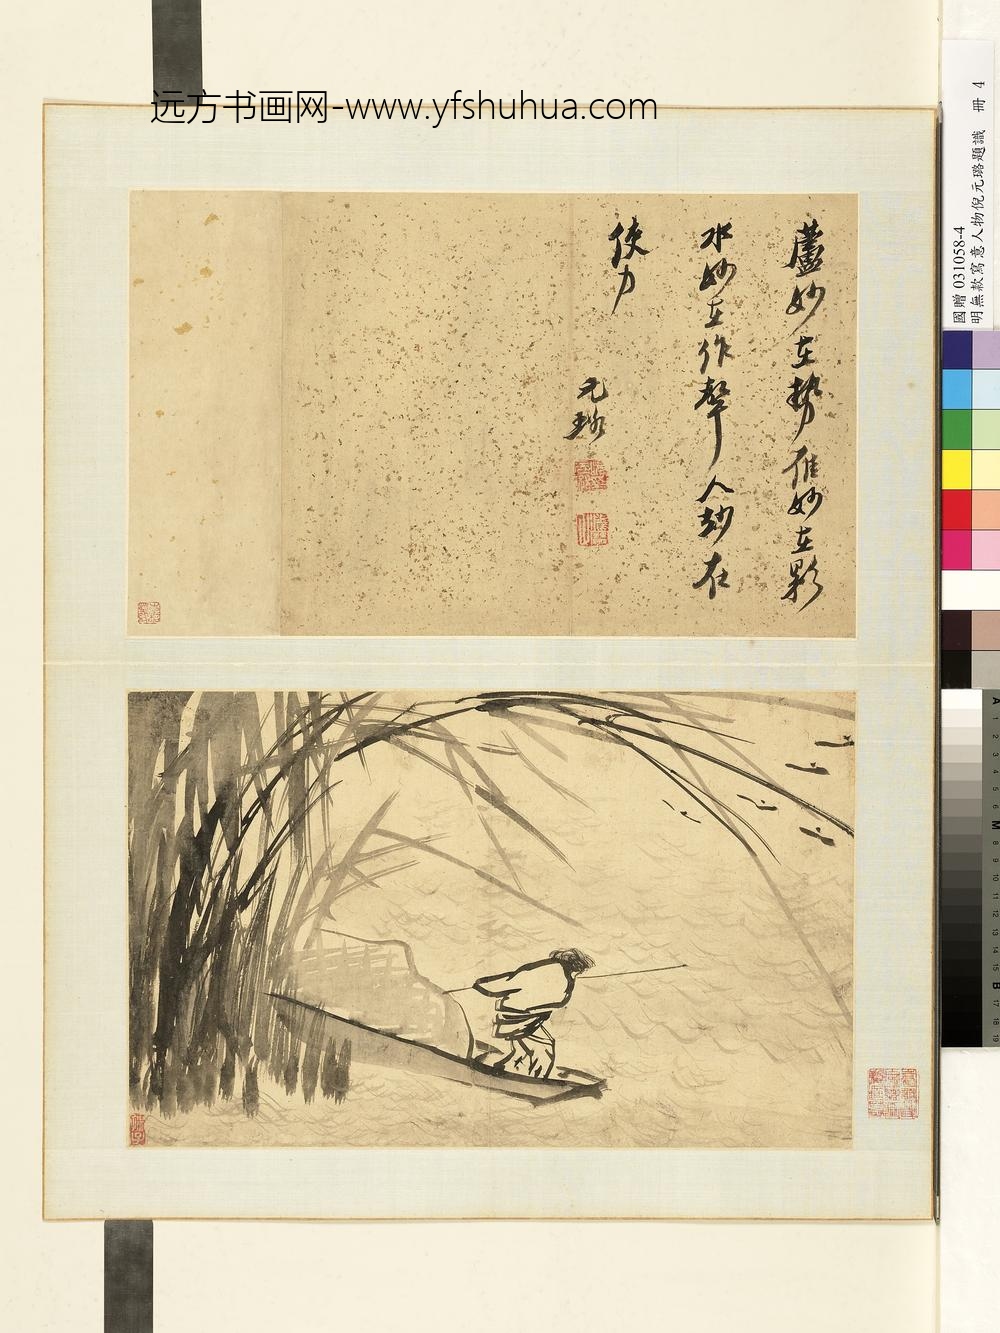 远方书画网-www.yfshuhua.com
蘆妙在勢雁妙在影
水妙在作聲人妙在
使力
元璐
國贈 031058-4
明無款寫意人物倪元璐題識 冊 4
A 1 2 3 4 5 6 M 8 9 10 11 12 13 14 15 B 17 18 19